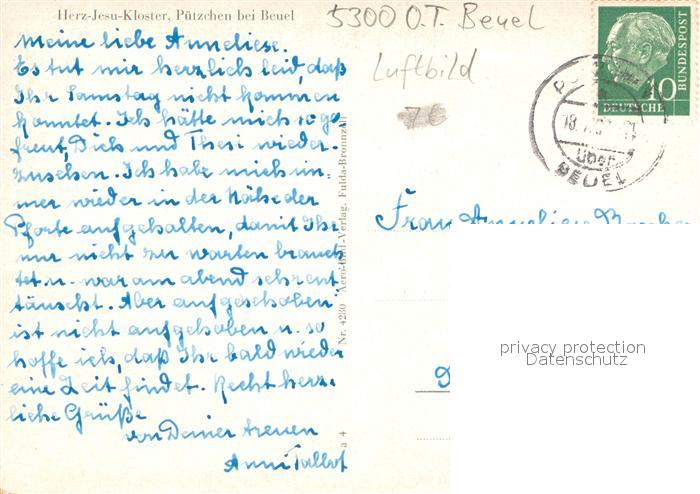 Herz-Jesu-Kloster, Pützchen bei Beuel
5300 O.T. Beuel
Luftbild
7€
Meine liebe Anneliese.
Es tut mir herzlich leid, daß
Ihr Samstag nicht kommen
konntet. Ich hätte mich so ge
freut, Dich und Thesi wieder-
zusehen. Ich habe mich im-
mer wieder in der Nähe der
Pforte aufgehalten, damit Ihr
nur nicht zu warten brauch
tet u. war am abend sehr ent
täuscht. Aber aufgeschoben
ist nicht aufgehoben u. so
hoffe ich, daß Ihr bald wieder
eine Zeit findet. Recht herz-
liche Grüße
von Deiner treuen
Anni
Nr. 4280 Aero-Bild-Verlag, Fulda-Bronnzell
a 4
DEUTSCHE
BUNDESPOST
10
über
BEUEL
Frau Anneliese
D
privacy protection
Datenschutz